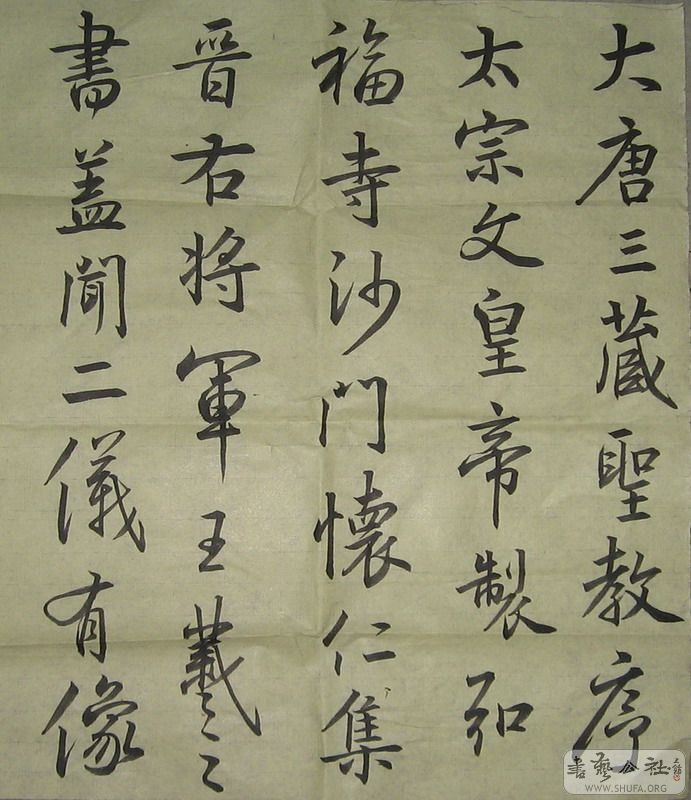 大唐三蔵聖教序
太宗文皇帝製弘
福寺沙門懷仁集
晉右將軍王羲之
書蓋聞二儀有像
書藝公社
WWW.SHUFA.ORG